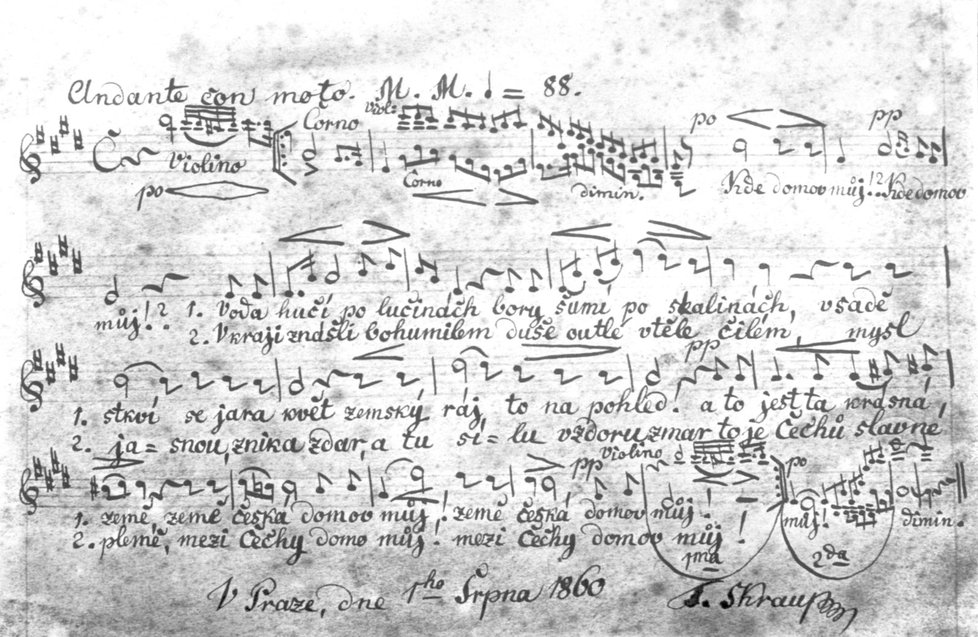 Andante con moto. M. M. ♩ = 88.
Viol: Corno po pp
Violino
po Corno dimin. Kde domov můj!? Kde domov
můj!? 1. Voda hučí po lučinách bory šumí po skalinách, v sadě
2. V kraji znášli bohumilem duše outlé v těle čilém, mysl
pp
1. stkví se jara květ zemský ráj to na pohled! a to jest ta krásná
2. ja=snou, znika zdar, a tu sí=lu vzdoru zmar to je Čechů slavné
pp Violino po
1. země, země česká domov můj! země česká domov můj! můj! dimin.
2. plémě, mezi Čechy domo můj! mezi Čechy domov můj!
1ma 2da
V Praze, dne 1ho Srpna 1860 F. Skraup